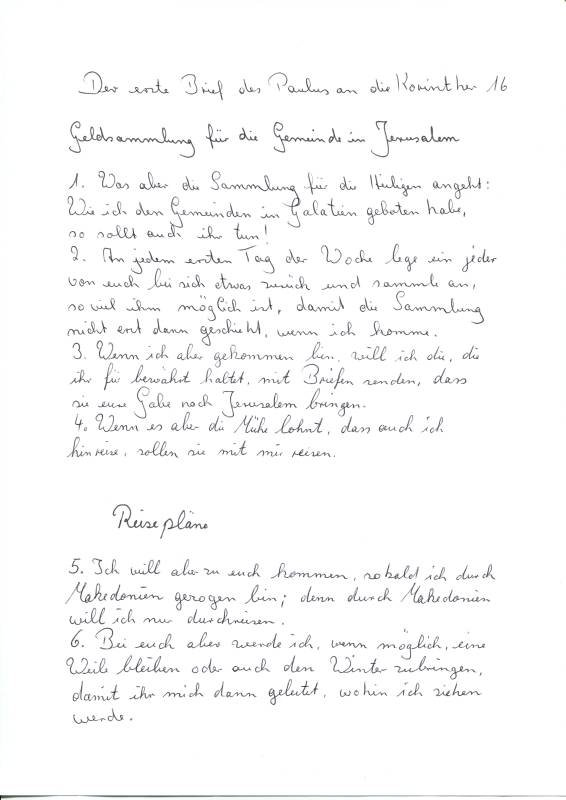 Der erste Brief des Paulus an die Korinther 16
Geldsammlung für die Gemeinde in Jerusalem
1. Was aber die Sammlung für die Heiligen angeht:
Wie ich den Gemeinden in Galatien geboten habe,
so sollt auch ihr tun!
2. An jedem ersten Tag der Woche lege ein jeder
von euch bei sich etwas zurück und sammle an,
so viel ihm möglich ist, damit die Sammlung
nicht erst dann geschieht, wenn ich komme.
3. Wenn ich aber gekommen bin, will ich die, die
ihr für bewährt haltet, mit Briefen senden, dass
sie eure Gabe nach Jerusalem bringen.
4. Wenn es aber die Mühe lohnt, dass auch ich
hinreise, sollen sie mit mir reisen.
Reisepläne
5. Ich will aber zu euch kommen, sobald ich durch
Makedonien gezogen bin; denn durch Makedonien
will ich nur durchreisen.
6. Bei euch aber werde ich, wenn möglich, eine
Weile bleiben oder auch den Winter zubringen,
damit ihr mich dann geleitet, wohin ich ziehen
werde.